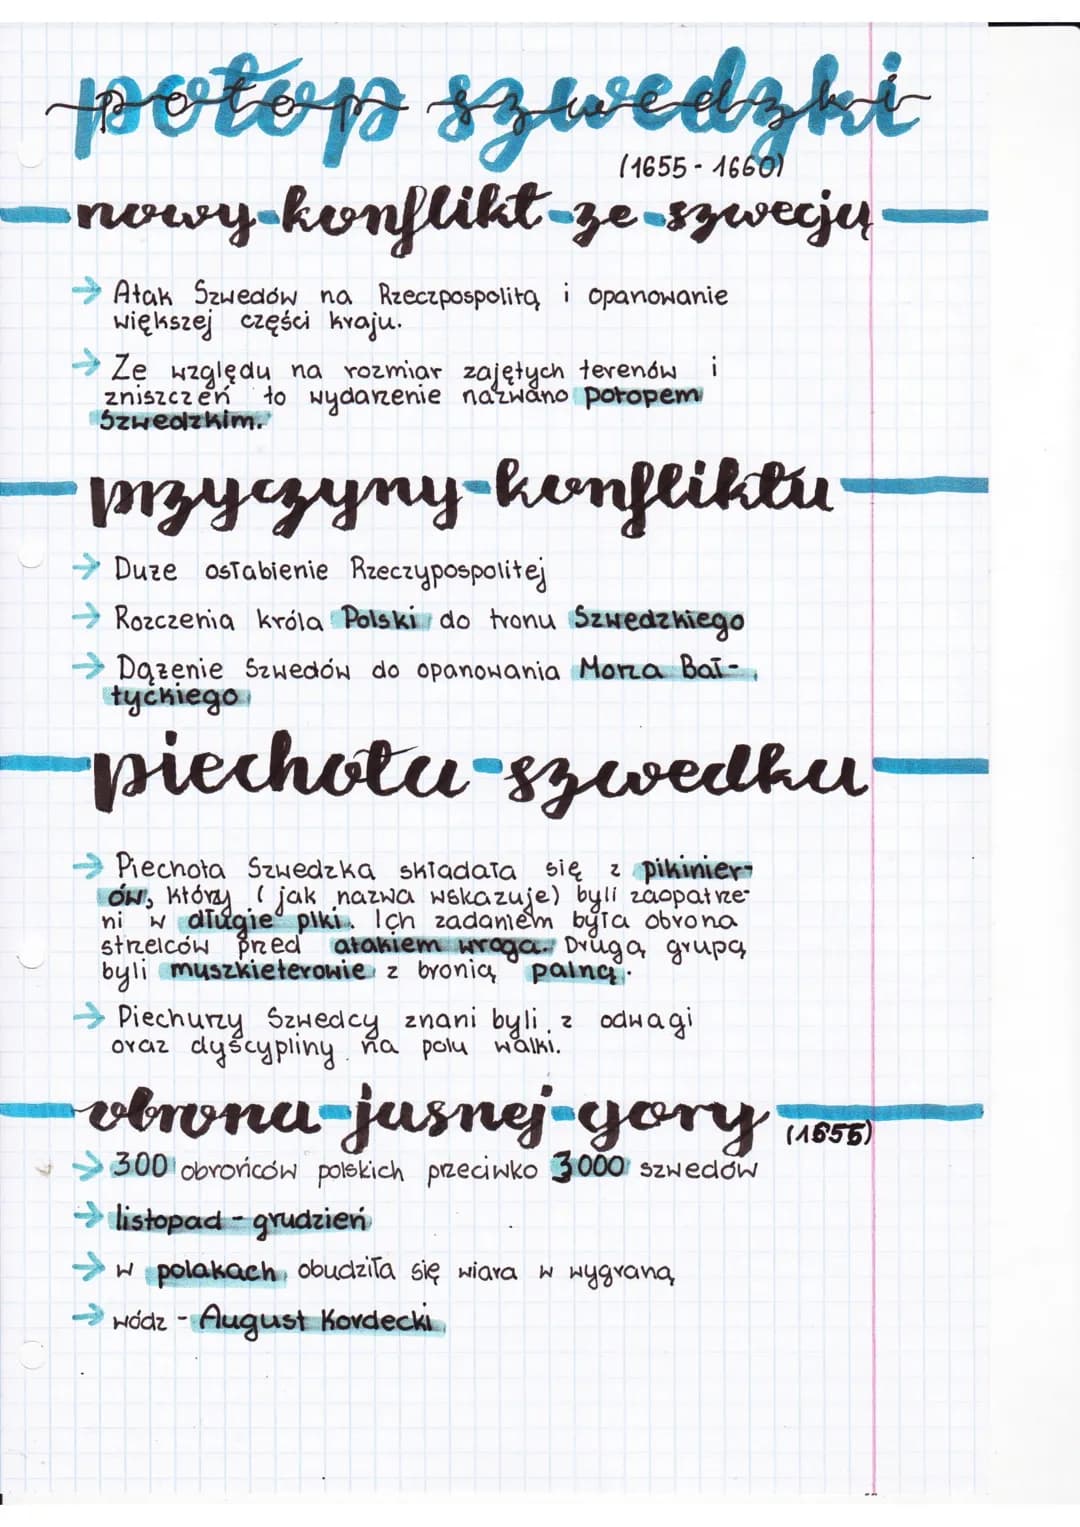 potop szwedzki
(1655 - 1660)
nowy konflikt ze szwecją
→ Atak Szwedów na Rzeczpospolitą i opanowanie
większej części kraju.
→ Ze względu na rozmiar zajętych terenów i
zniszczeń to wydarzenie nazwano potopem
Szwedzkim.
przyczyny konfliktu
→ Duże osłabienie Rzeczypospolitej
→ Rozczenia króla Polski do tronu Szwedzkiego
→ Dążenie Szwedów do opanowania Morza Bał-
tyckiego
piechota szwedka
→ Piechota Szwedzka składała się z pikinier-
ów, którzy (jak nazwa wskazuje) byli zaopatrze-
ni w długie piki. Ich zadaniem była obrona
strzelców pred atakiem wroga. Drugą grupą
byli muszkieterowie z bronią palną.
→ Piechurzy Szwedcy znani byli z odwagi
oraz dyscypliny na polu walki.
obrona jasnej gory
(1655)
→ 300 obrońców polskich przeciwko 3000 szwedów
→ listopad - grudzień
→ w polakach obudziła się wiara w wygraną
→ wódz - August Kordecki